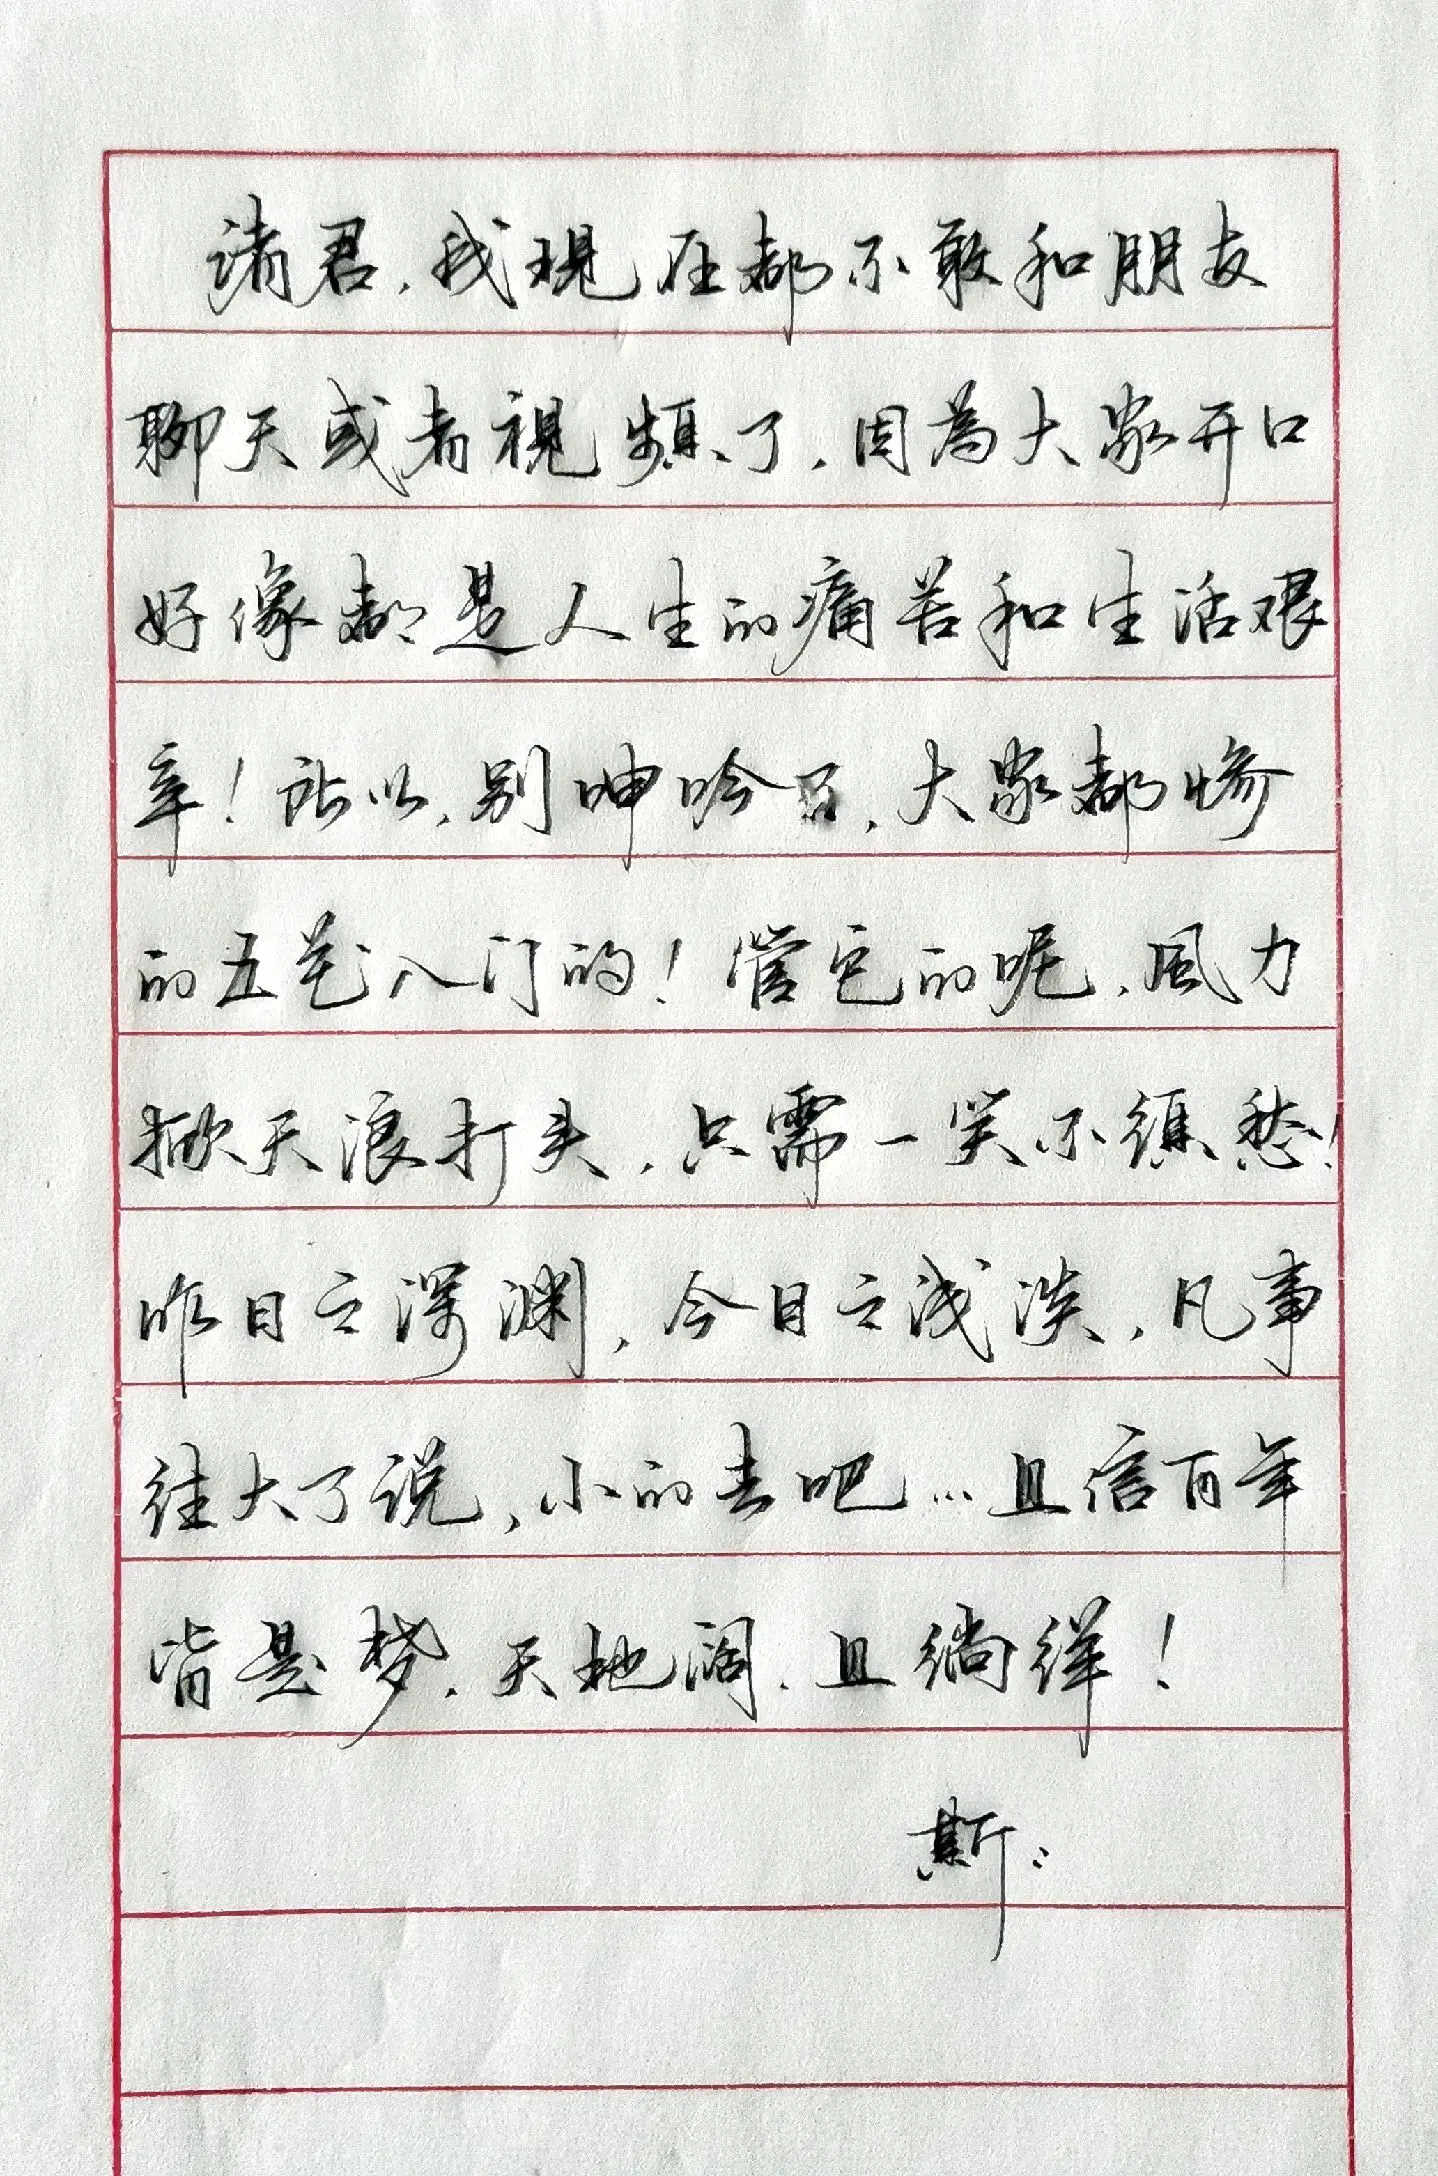 诸君，我現在都不敢和朋友
聊天或者視頻了，因為大家开口
好像都是人生的痛苦和生活艰
辛！所以，别呻吟了，大家都惨
的五花八门的！管它的呢，風力
掀天浪打头，只需一笑不须愁！
昨日之深渊，今日之浅淡，凡事
往大了说，小的去吧…且信百年
皆是梦，天地阔，且徜徉！
斯：